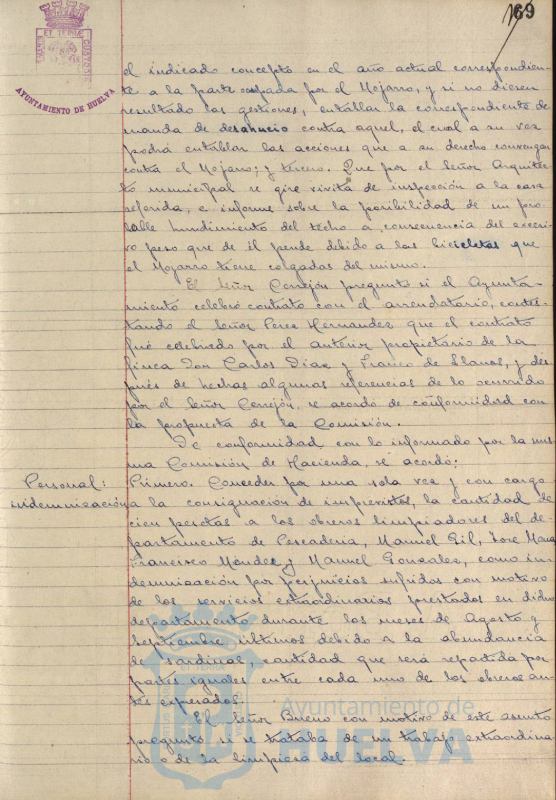 169
AYUNTAMIENTO DE HUELVA
el indicado concepto en el año actual correspondien-
te a la parte ocupada por el Mojarro, y si no dieren
resultado las gestiones, entablar la correspondiente de-
manda de desahucio contra aquel, el cual a su vez
podrá entablar las acciones que a su derecho convengan
contra el Mojarro; y tercero. Que por el Señor Arquitec-
to municipal se gire visita de inspección a la casa
referida, e informe sobre la posibilidad de un pro-
bable hundimiento del techo a consecuencia del excesi-
vo peso que de él pende debido a las bicicletas que
el Mojarro tiene colgadas del mismo.
El Señor Cerrejón preguntó si el Ayunta-
miento celebró contrato con el arrendatario, contes-
tando el Señor Perez Hernandez que el contrato
fué celebrado por el anterior propietario de la
finca Don Carlos Diaz y Franco de Llanos, y des-
pués de hechas algunas referencias de lo ocurrido
por el Señor Cerrejón, se acordo de conformidad con
la propuesta de la Comisión.
De conformidad con lo informado por la mis-
ma Comisión de Hacienda, se acordó:
Personal:
indemnización
Primero. Conceder por una sola vez y con cargo
a la consignación de imprevistos, la cantidad de
cien pesetas a los obreros limpiadores del de-
partamento de Pescadería, Manuel Gil, José Mora
Francisco Mendez y Manuel Gonzalez, como in-
demnización por perjuicios sufridos con motivo
de los servicios extraordinarios prestados en dicho
departamento durante los meses de Agosto y
Septiembre últimos debido a la abundancia
de sardinas, cantidad que será repartida por
partes iguales entre cada uno de los obreros an-
tes expresados.
El Señor Bueno con motivo de este asunto
preguntó si se trataba de un trabajo extraordina-
rio o de la limpieza del local.
Ayuntamiento de
HUELVA